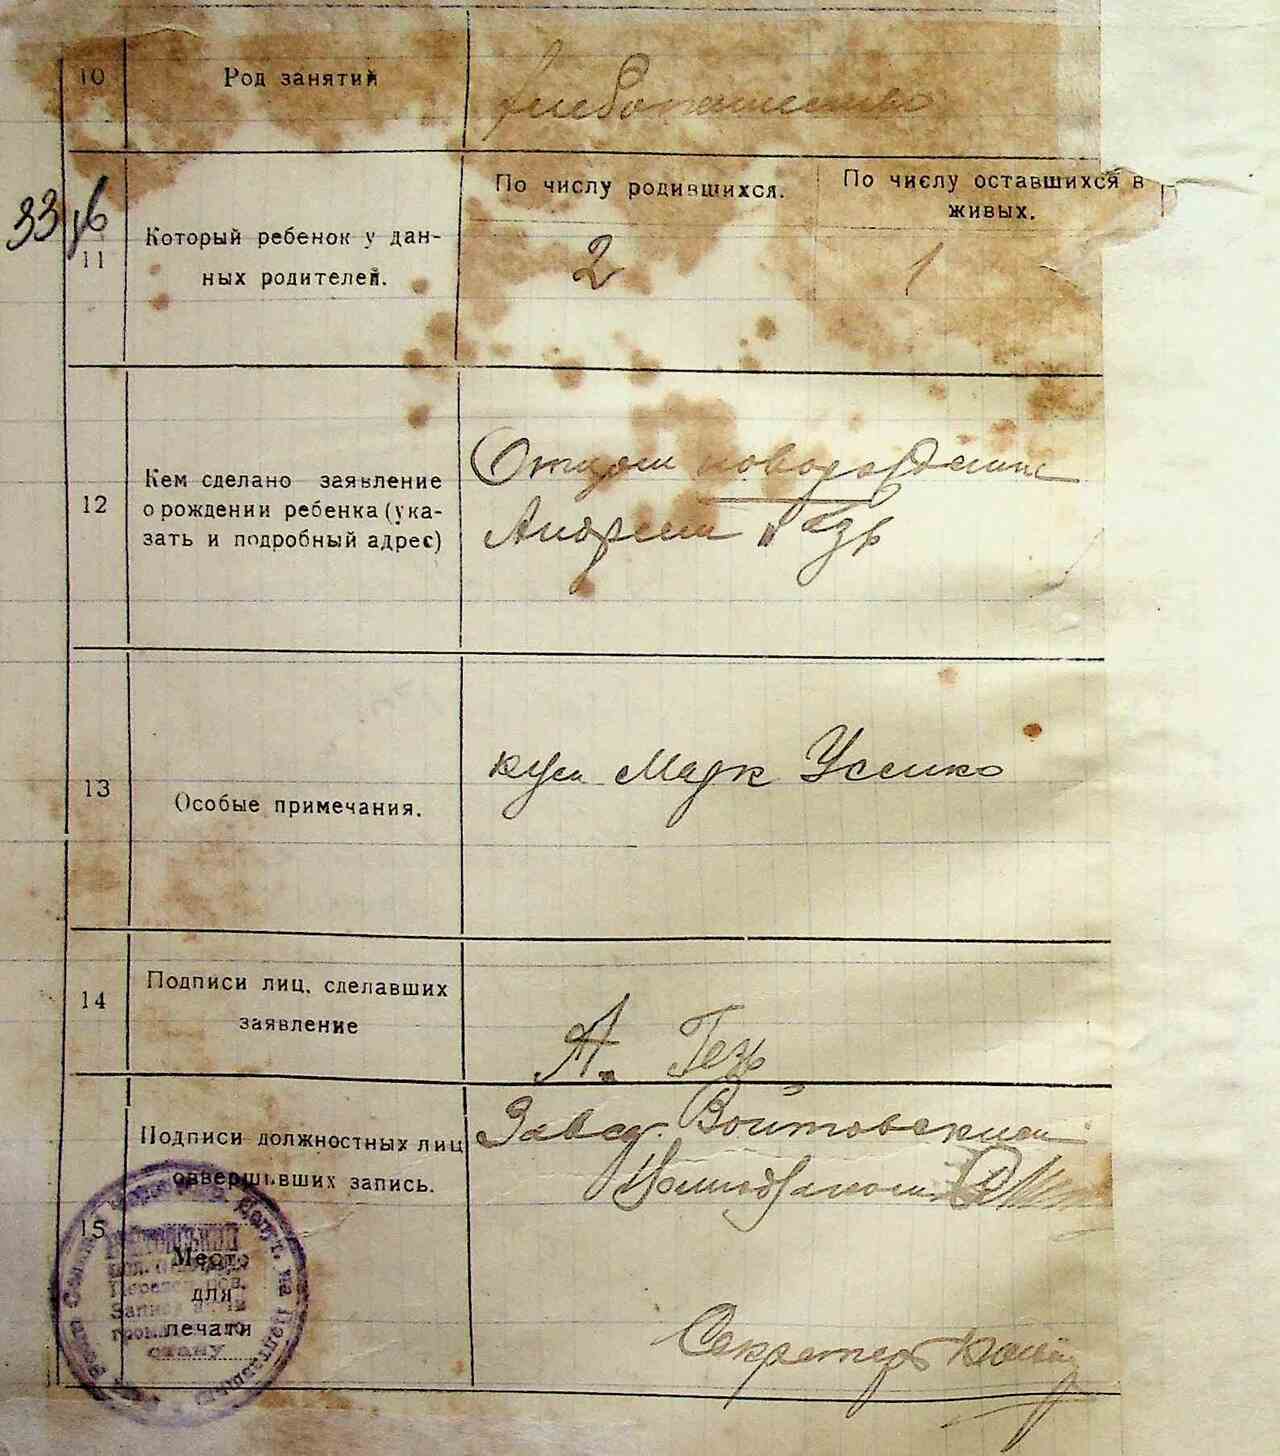 10
Род занятий
хлебопашество
33
11
Который ребенок у дан-
ных родителей.
По числу родившихся.
По числу оставшихся в
живых.
2
1
12
Кем сделано заявление
о рождении ребенка (ука-
зать и подробный адрес)
Отцом новорожденно
Андреем Гезь
13
Особые примечания.
кум Марк Усенко
14
Подписи лиц, сделавших
заявление
А. Гезь
15
Подписи должностных лиц
совершивших запись.
Завед. Войтовский
Секретарь
Место
для
печати
Запис
стану